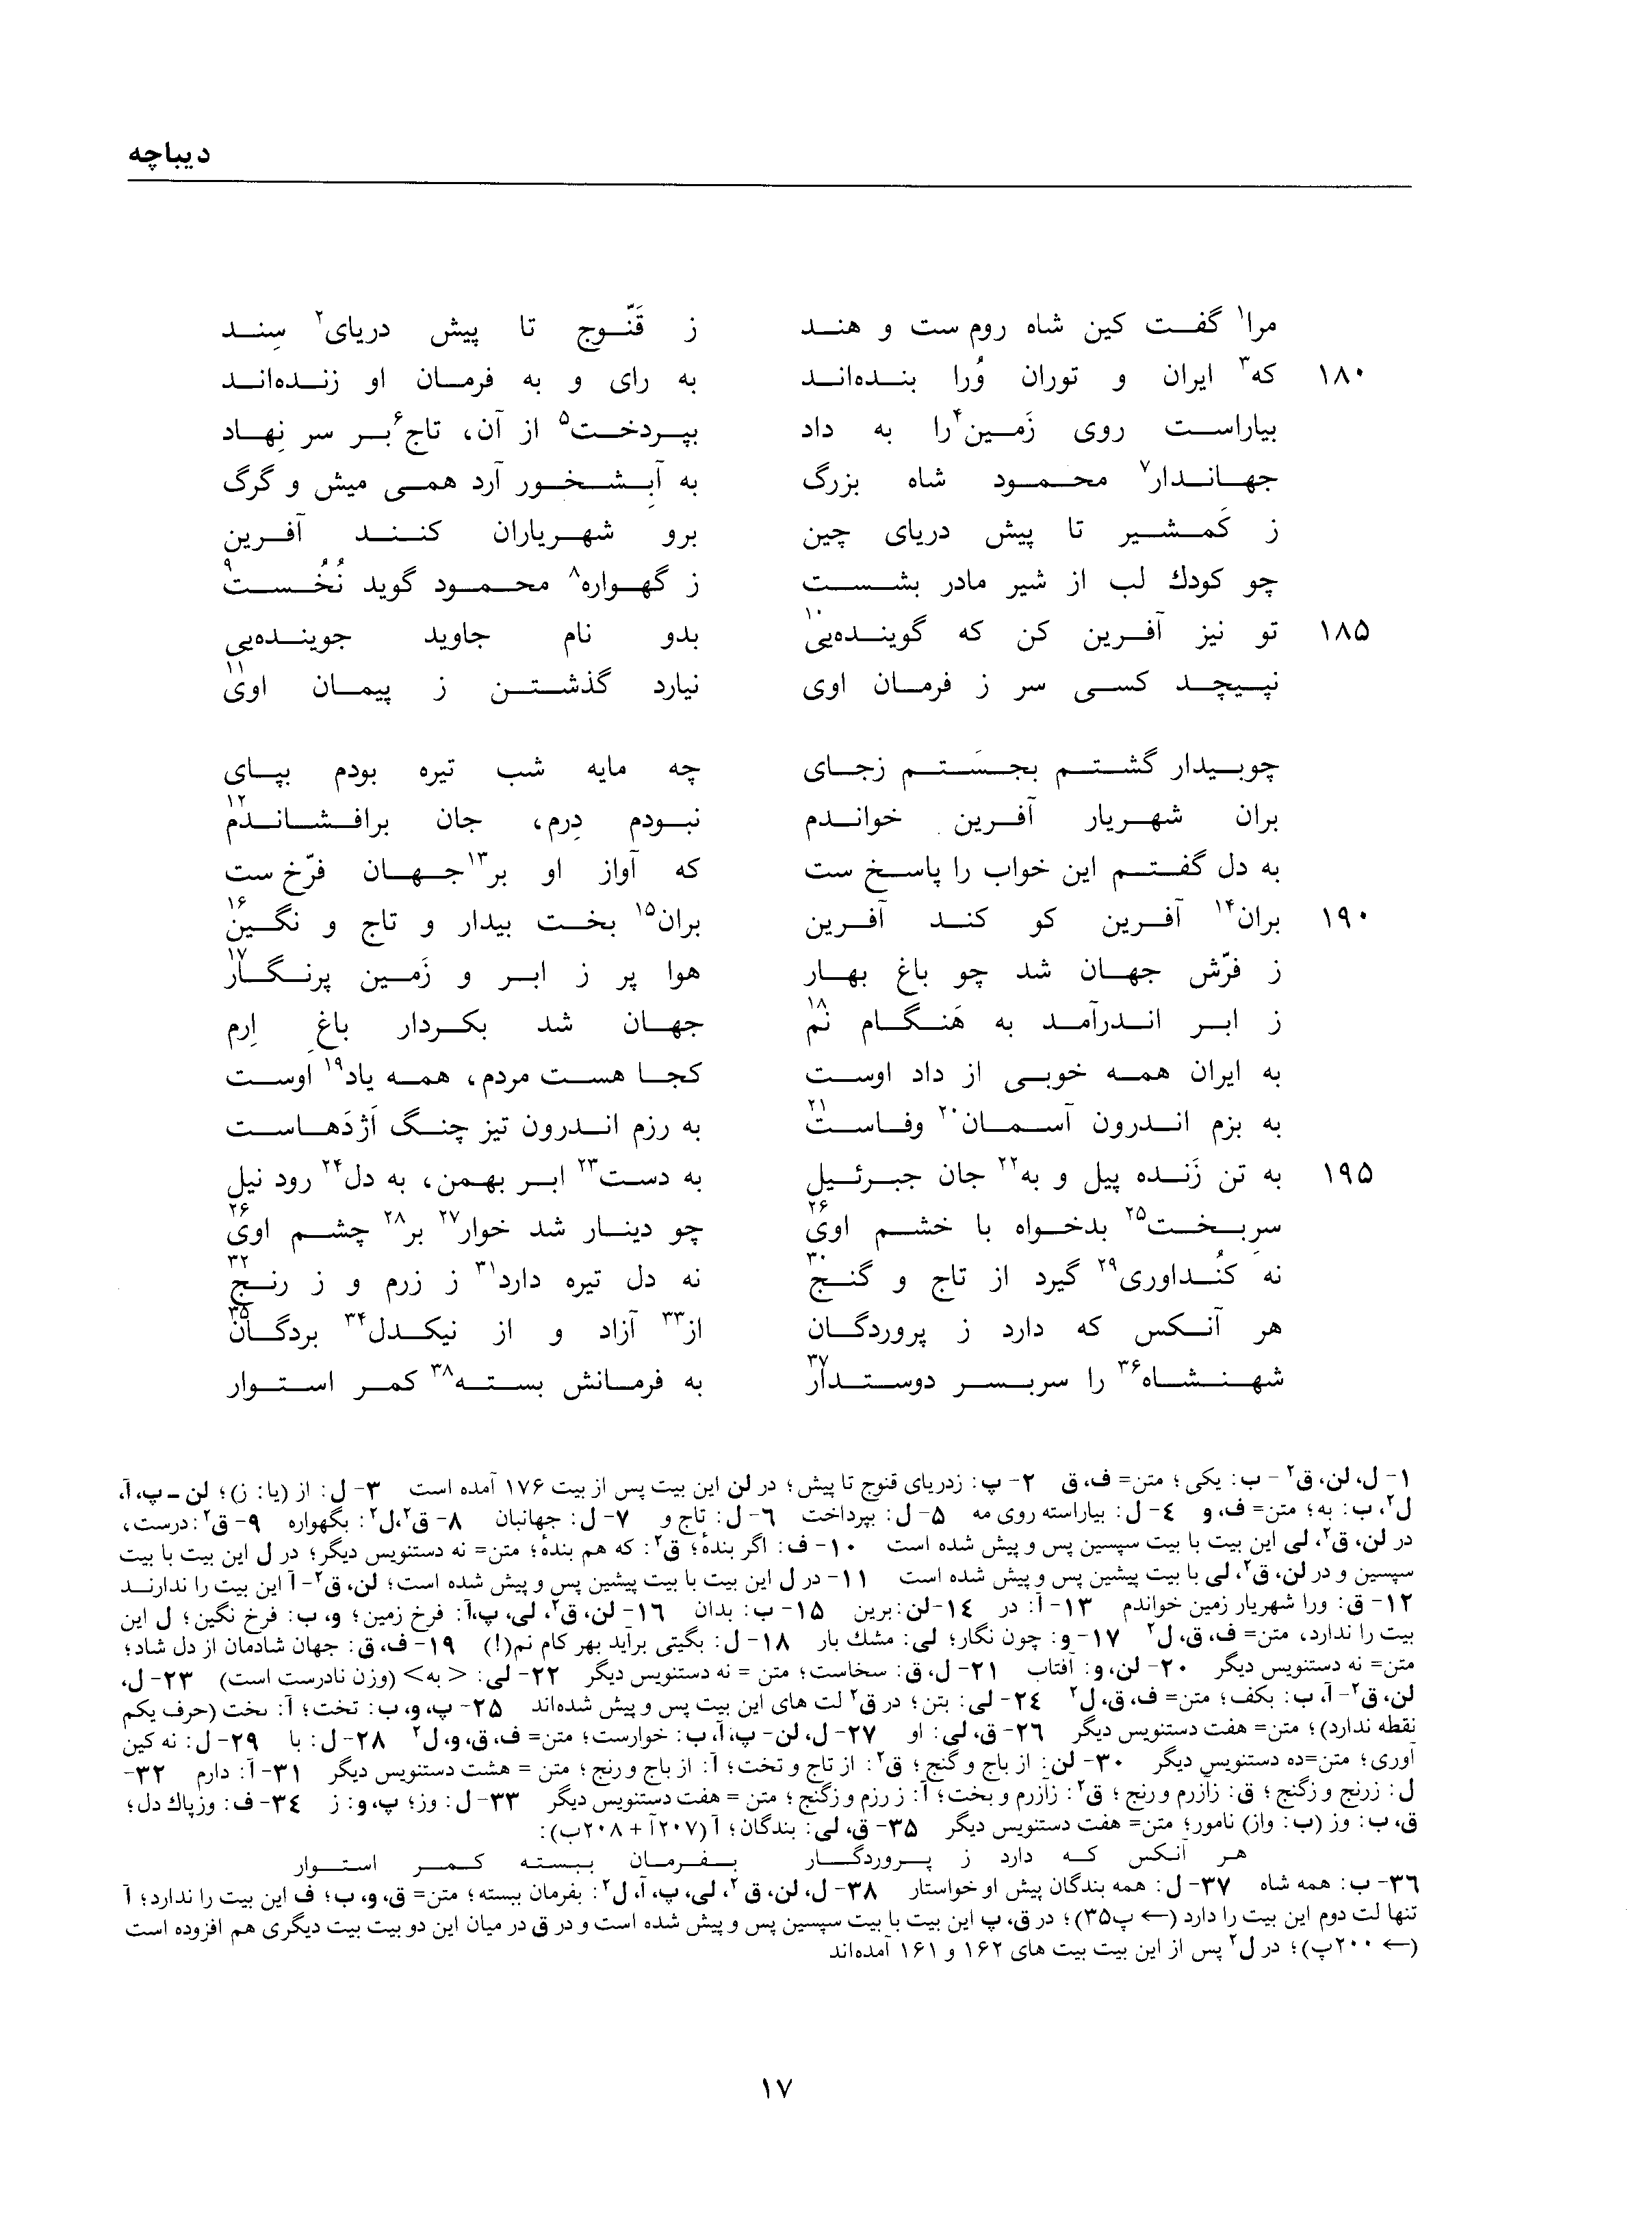 دیباچه
مرا۱ گفت کین شاه روم ست و هند ز قَنّوج تا پیش دریای۲ سِند
۱۸۰ که۳ ایران و توران وُرا بنده‌اند به رای و به فرمان او زنده‌اند
بیاراست روی زَمین۴ را به داد بپردخت۵ از آن، تاج۶ بر سر نِهاد
جهاندار۷ محمود شاه بزرگ به آبِشخور آرد همی میش و گرگ
ز کَمشیر تا پیش دریای چین برو شهریاران کنند آفرین
چو کودك لب از شیر مادر بشست ز گهواره۸ محمود گوید نُخُست۹
۱۸۵ تو نیز آفرین کن که گوینده‌یی۱۰ بدو نام جاوید جوینده‌یی
نپیچد کسی سر ز فرمان اوی نیارد گذشتن ز پیمان اوی۱۱
چوبیدار گشتم بجَستم زجای چه مایه شب تیره بودم بپای
بران شهریار آفرین خواندم نبودم دِرم، جان برافشاندم۱۲
به دل گفتم این خواب را پاسخ ست که آواز او بر۱۳ جهان فرّخ ست
۱۹۰ بران۱۴ آفرین کو کند آفرین بران۱۵ بخت بیدار و تاج و نگین۱۶
ز فرّش جهان شد چو باغ بهار هوا پر ز ابر و زَمین پرنگار۱۷
ز ابر اندرآمد به هَنگام نم۱۸ جهان شد بکردار باغِ اِرم
به ایران همه خوبی از داد اوست کجا هست مردم، همه یاد۱۹ اوست
به بزم اندرون آسمان۲۰ وفاست۲۱ به رزم اندرون تیز چنگ اَژدَهاست
۱۹۵ به تن زَنده پیل و به۲۲ جان جبرئیل به دست۲۳ ابر بهمن، به دل۲۴ رود نیل
سرِبخت۲۵ بدخواه با خشم اوی۲۶ چو دینار شد خوار۲۷ بر۲۸ چشم اوی۲۶
نه کُنداوری۲۹ گیرد از تاج و گنج۳۰ نه دل تیره دارد۳۱ ز زرم و ز رنج۳۲
هر آنکس که دارد ز پروردگان از۳۳ آزاد و از نیکدل۳۴ بردگان۳۵
شهنشاه۳۶ را سربسر دوستدار۳۷ به فرمانش بسته۳۸ کمر استوار
۱- ل، لن، ق۲ - ب: یکی؛ متن= ف، ق ۲- پ: زدریای قنوج تا پیش؛ در لن این بیت پس از بیت ۱۷۶ آمده است ۳- ل: از (یا: ز)؛ لن ـ پ، آ،
ل۲، ب: به؛ متن= ف، و ۴- ل: بیاراسته روی مه ۵- ل: بپرداخت ۶- ل: تاج و ۷- ل: جهانبان ۸- ق۲، ل۲: بگهواره ۹- ق۲: درست،
در لن، ق۲، لی این بیت با بیت سپسین پس و پیش شده است ۱۰- ف: اگر بندهٔ؛ ق۲: که هم بندهٔ؛ متن= نه دستنویس دیگر؛ در ل این بیت با بیت
سپسین و در لن، ق۲، لی با بیت پیشین پس و پیش شده است ۱۱- در ل این بیت با بیت پیشین پس و پیش شده است؛ لن، ق۲- آ این بیت را ندارند
۱۲- ق: ورا شهریار زمین خواندم ۱۳- آ: در ۱۴- لن: برین ۱۵- ب: بدان ۱۶- لن، ق۲، لی، پ، آ: فرخ زمین؛ و، ب: فرخ نگین؛ ل این
بیت را ندارد، متن= ف، ق، ل۲ ۱۷- و: چون نگار؛ لی: مشك بار ۱۸- ل: بگیتی برآید بهر کام نم(!) ۱۹- ف، ق: جهان شادمان از دل شاد؛
متن= نه دستنویس دیگر ۲۰- لن، و: آفتاب ۲۱- ل، ق: سخاست؛ متن = نه دستنویس دیگر ۲۲- لی: < به> (وزن نادرست است) ۲۳- ل،
لن، ق۲- آ، ب: بکف؛ متن= ف، ق، ل۲ ۲۴- لی: بتن؛ در ق۲ لت های این بیت پس و پیش شده‌اند ۲۵- پ، و، ب: تخت؛ آ: ىخت (حرف یکم
نقطه ندارد)؛ متن= هفت دستنویس دیگر ۲۶- ق، لی: او ۲۷- ل، لن- پ، آ، ب: خوارست؛ متن= ف، ق، و، ل۲ ۲۸- ل: با ۲۹- ل: نه کین
آوری؛ متن=ده دستنویس دیگر ۳۰- لن: از باج و گنج؛ ق۲: از تاج و تخت؛ آ: از باج و رنج؛ متن = هشت دستنویس دیگر ۳۱- آ: دارم ۳۲-
ل: زرنج و زگنج؛ ق: زآزرم و رنج؛ ق۲: زآزرم و بخت؛ آ: ز رزم و زگنج؛ متن = هفت دستنویس دیگر ۳۳- ل: وز؛ پ، و: ز ۳۴- ف: وزپاك دل؛
ق، ب: وز (ب: واز) نامور؛ متن= هفت دستنویس دیگر ۳۵- ق، لی: بندگان؛ آ (۲۰۷آ + ۲۰۸ب):
هر آنکس که دارد ز پروردگار بفرمان ببسته کمر استوار
۳۶- ب: همه شاه ۳۷- ل: همه بندگان پیش او خواستار ۳۸- ل، لن، ق۲، لی، پ، آ، ل۲: بفرمان ببسته؛ متن= ق، و، ب؛ ف این بیت را ندارد؛ آ
تنها لت دوم این بیت را دارد (← پ۳۵)؛ در ق، پ این بیت با بیت سپسین پس و پیش شده است و در ق در میان این دو بیت بیت دیگری هم افزوده است
(← ۲۰۰پ)؛ در ل۲ پس از این بیت بیت های ۱۶۲ و ۱۶۱ آمده‌اند
۱۷